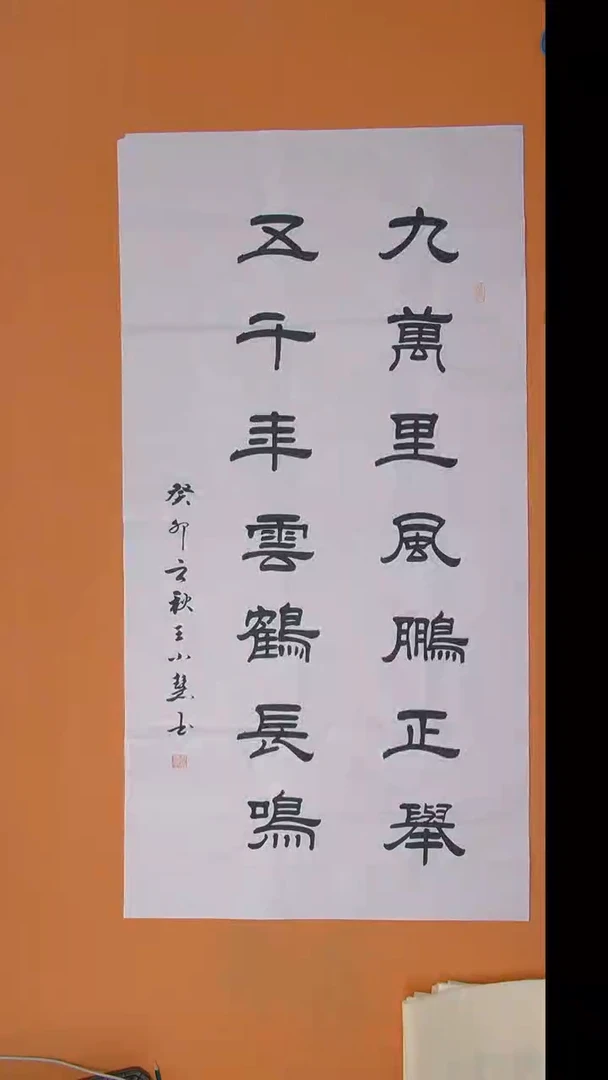 九萬里風鵬正舉
五千年雲鶴長鳴
癸卯立秋王小慧书